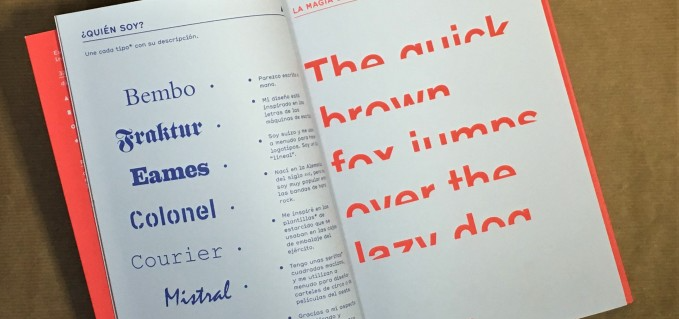 ¿QUIÉN SOY?
Une cada tipo* con su descripción.
Bembo
Fraktur
Eames
Colonel
Courier
Mistral
Parezco
mano.
Mi diseño está
inspirado en las
letras de las
máquinas de
Soy suizo y me
a menudo para
logotipos. Soy
"lineal".
Nací en la
del siglo
soy muy popular en
las bandas de
rock.
Me inspiré en las
plantillas* de
estarcido que se
usaban en las
de embalaje del
ejército.
Tengo unas serifas*
cuadradas
y me utilizan a
menudo para diseñar
carteles de
películas del oeste
Gracias a mi aspecto
LA MAGIA
The quick
brown
fox jumps
over the
lazy dog